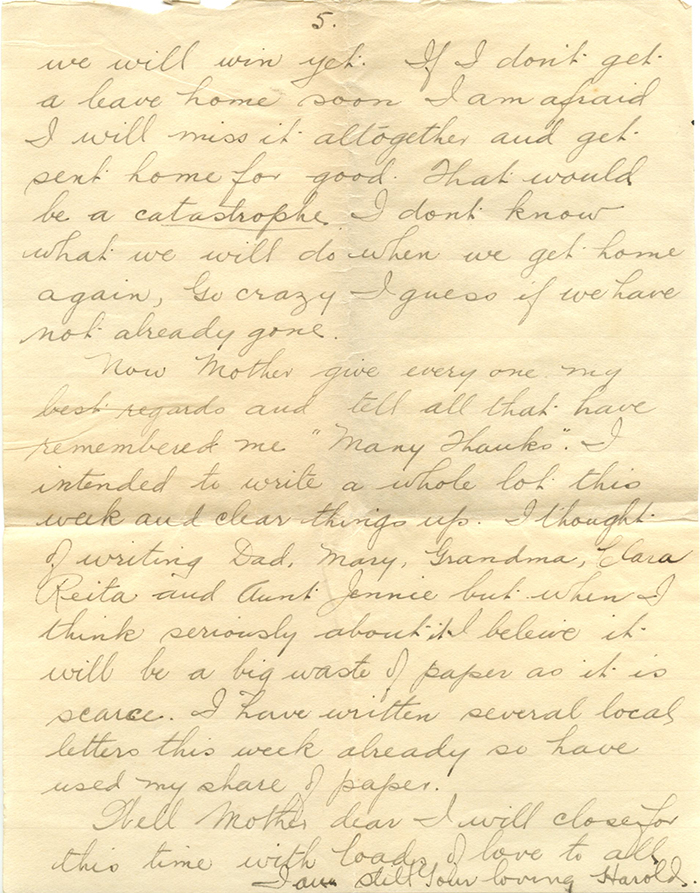 5.
we will win yet. If I don't get
a leave home soon I am afraid
I will miss it altogether and get
sent home for good. That would
be a catastrophe. I dont know
what we will do when we get home
again, Go crazy I guess if we have
not already gone.
Now Mother give every one my
best regards and tell all that have
remembered me "Many Thanks". I
intended to write a whole lot this
week and clear things up. I thought
of writing Dad, Mary, Grandma, Clara
Reita and Aunt Jennie but when I
think seriously about it I beleive it
will be a big waste of paper as it is
scarce. I have written several local
letters this week already so have
used my share of paper.
Well Mother dear I will close for
this time with loads of love to all
I am still Your loving Harold.